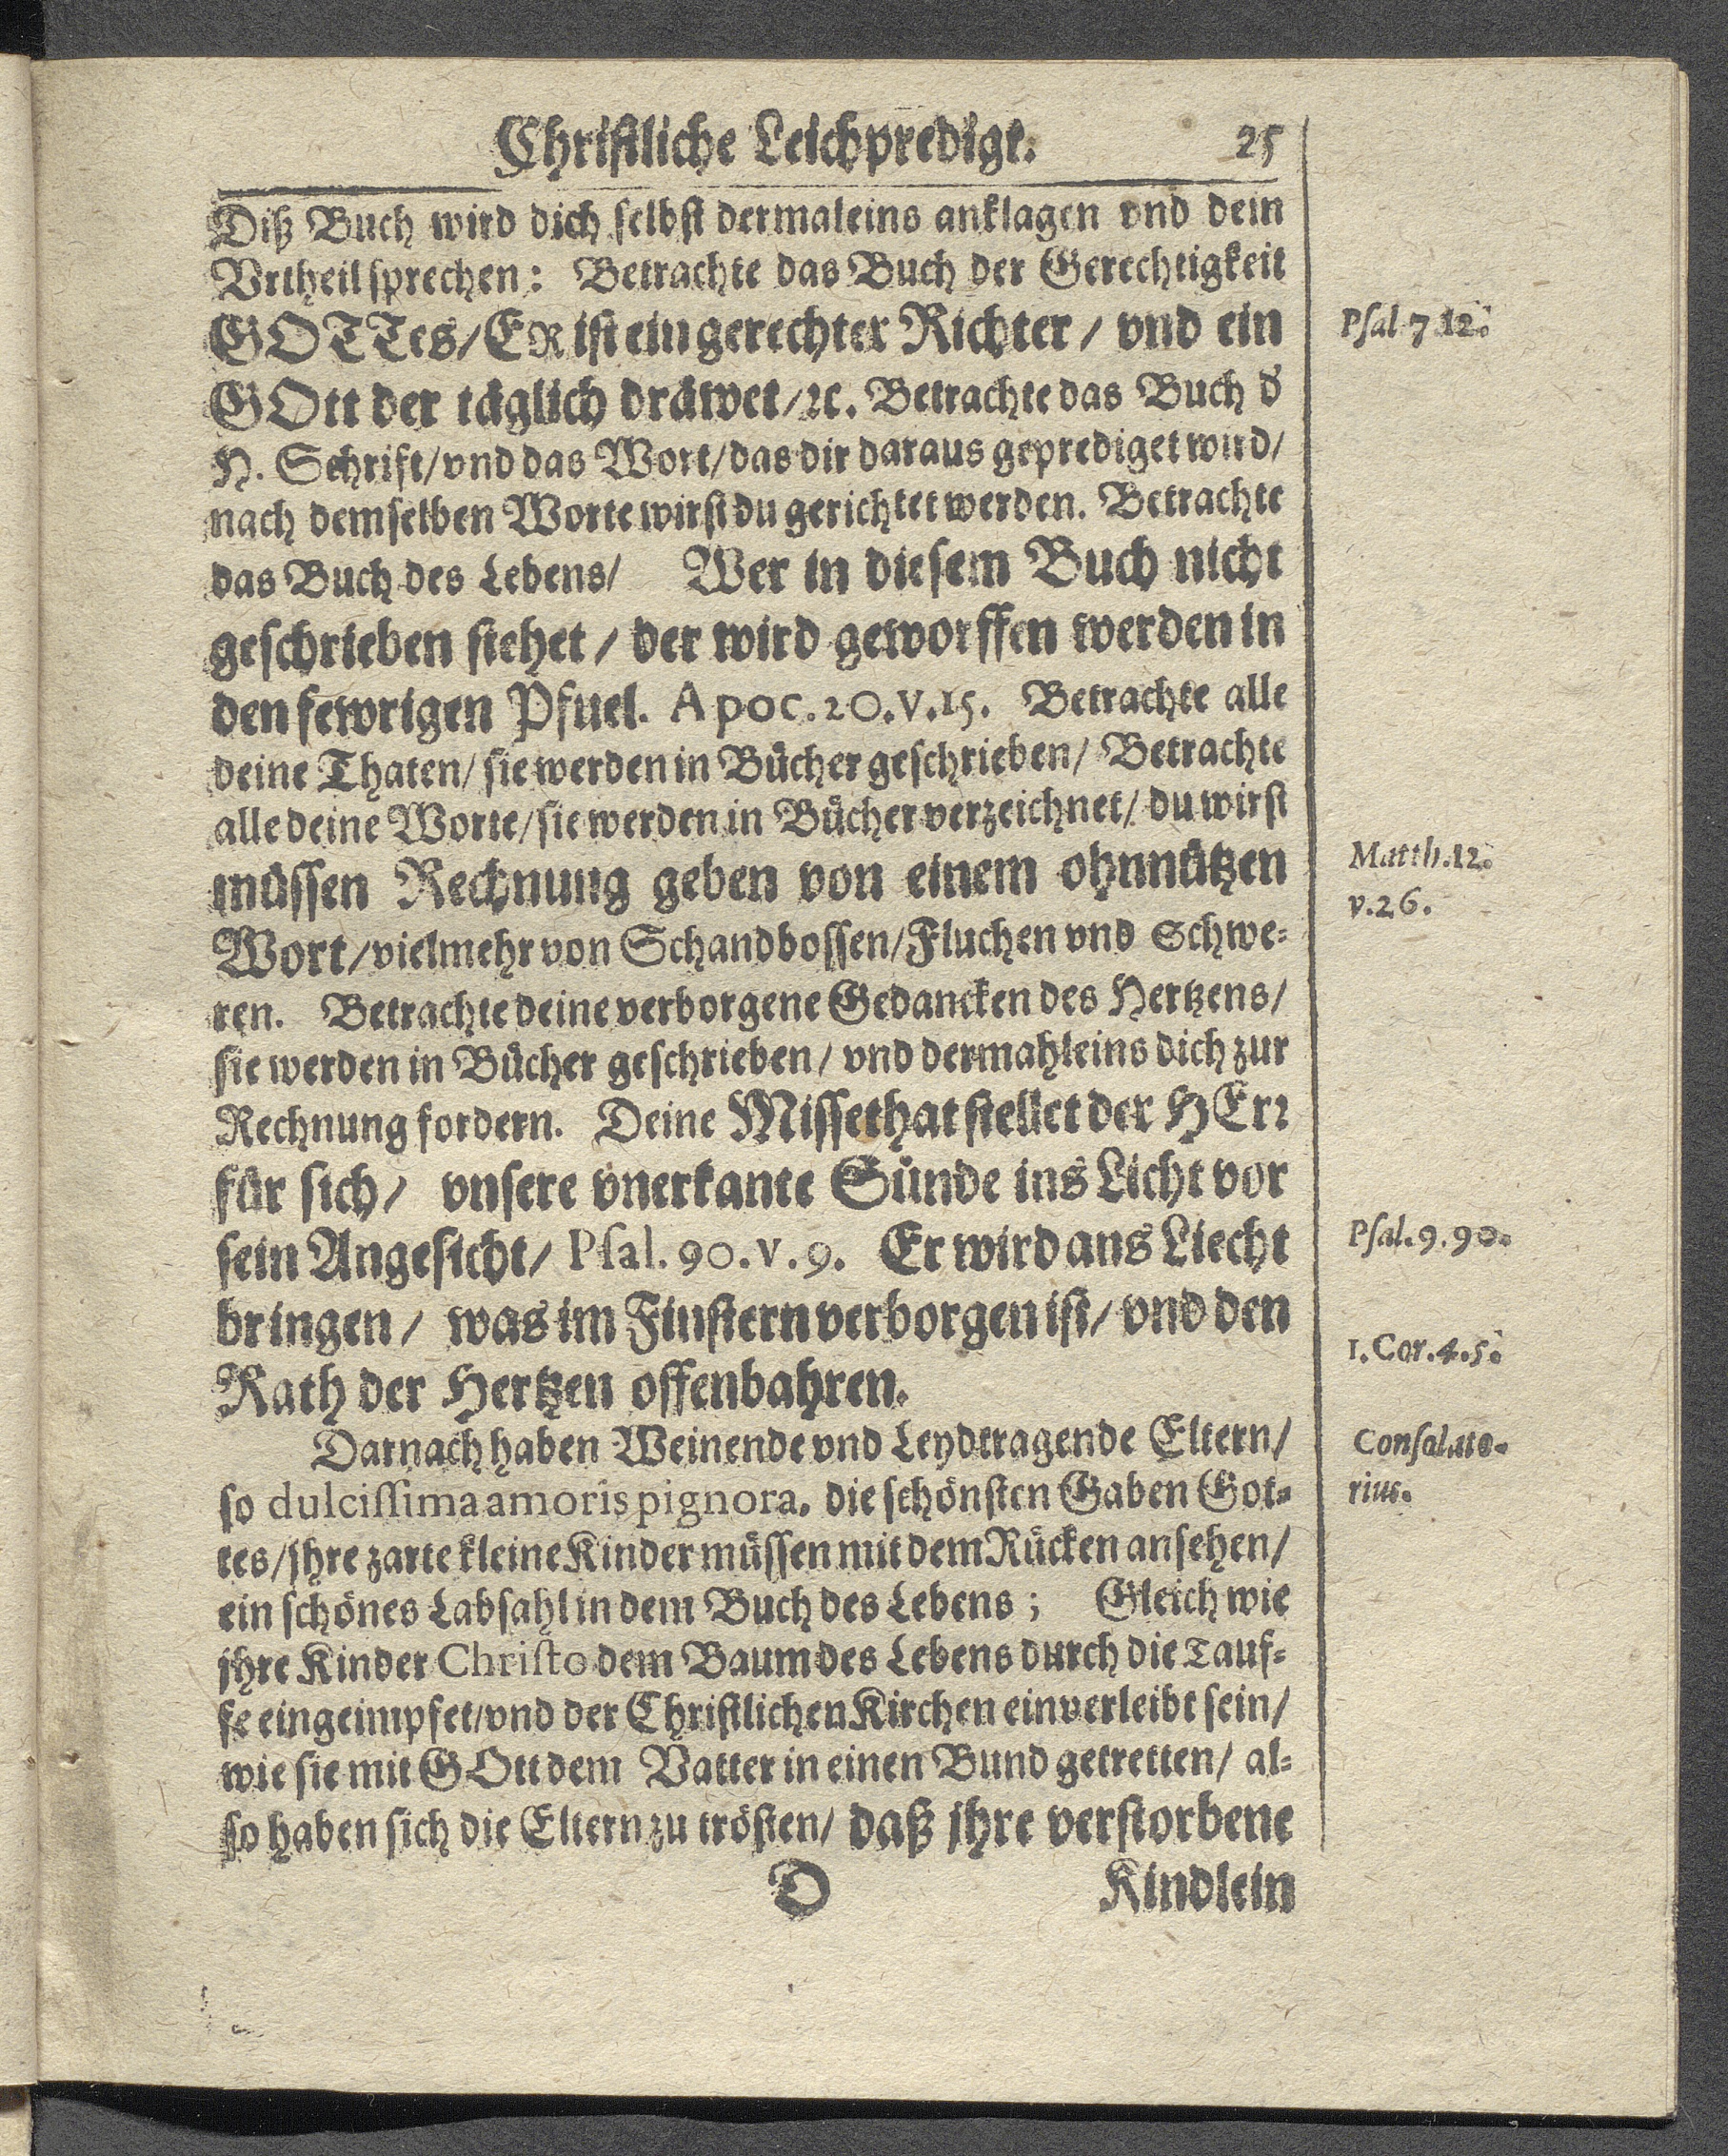 Christliche Leichpredigt. 25
Diß Buch wird dich selbst dermaleins anklagen vnd dein
Vrtheil sprechen: Betrachte das Buch der Gerechtigkeit
GOTTes/ ER ist ein gerechter Richter / vnd ein
Psal. 7. 12.
GOtt der täglich dräwet/ ꝛc. Betrachte das Buch d'
H. Schrift/ vnd das Wort/ das dir daraus geprediget wird/
nach demselben Worte wirst du gerichtet werden. Betrachte
das Buch des Lebens/ Wer in diesem Buch nicht
geschrieben stehet / der wird geworffen werden in
den fewrigen Pfuel. Apoc. 20. v. 15. Betrachte alle
deine Thaten/ sie werden in Bücher geschrieben/ Betrachte
alle deine Worte/ sie werden in Bücher verzeichnet/ du wirst
müssen Rechnung geben von einem ohnnützen
Matth. 12.
v. 26.
Wort/ vielmehr von Schandbossen/ Fluchen vnd Schwe-
ren. Betrachte deine verborgene Gedancken des Hertzens/
sie werden in Bücher geschrieben/ vnd dermahleins dich zur
Rechnung fordern. Deine Missethat stellet der HErr
für sich/ vnsere vnerkante Sünde ins Licht vor
sein Angesicht/ Psal. 90. v. 9. Er wird ans Liecht
Psal. 9. 90.
bringen / was im Finstern verborgen ist/ vnd den
1. Cor. 4. 5.
Rath der Hertzen offenbahren.
Darnach haben Weinende vnd Leydtragende Eltern/
Consolato-
so dulcissima amoris pignora, die schönsten Gaben Got-
rius.
tes/ jhre zarte kleine Kinder müssen mit dem Rücken ansehen/
ein schönes Labsahl in dem Buch des Lebens; Gleich wie
jhre Kinder Christo dem Baum des Lebens durch die Tauf-
fe eingeimpfet/ vnd der Christlichen Kirchen einverleibt sein/
wie sie mit GOtt dem Vatter in einen Bund getretten/ al-
so haben sich die Eltern zu trösten/ daß jhre verstorbene
D Kindlein